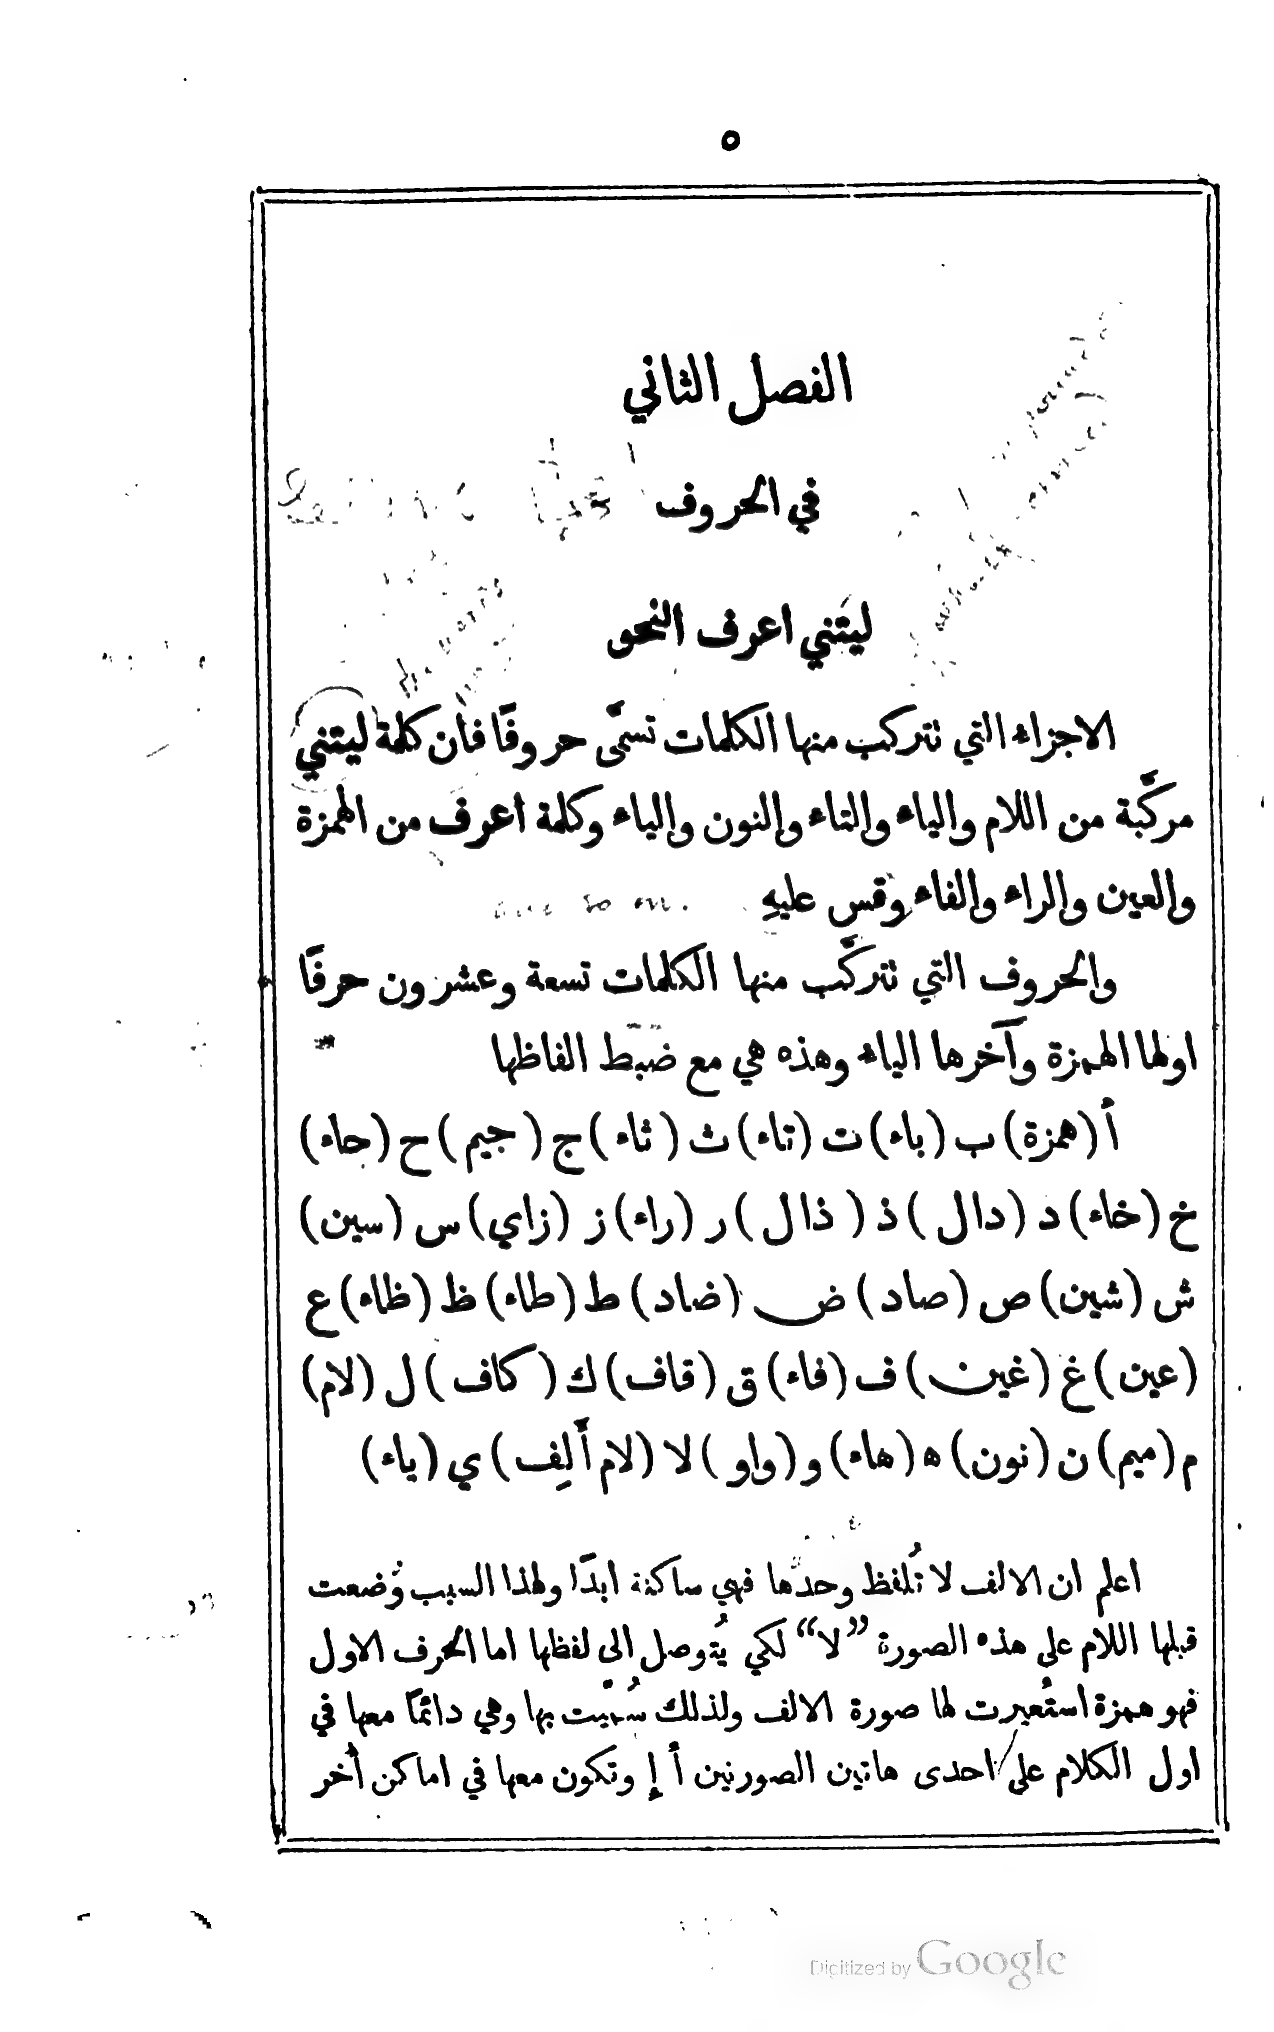 ٥
الفصل الثاني
في الحروف
ليتني اعرف النحو
الاجزاء التي تتركب منها الكلمات تسمَّى حروفًا فان كلمة ليتني
مركَّبة من اللام والياء والتاء والنون والياء وكلمة اعرف من الهمزة
والعين والراء والفاء وقس عليهِ
والحروف التي تتركَّب منها الكلمات تسعة وعشرون حرفًا
اولها الهمزة وآخرها الياء وهذه هي مع ضبط الفاظها
أ (همزة) ب (باء) ت (تاء) ث (ثاء) ج (جيم) ح (حاء)
خ (خاء) د (دال) ذ (ذال) ر (راء) ز (زاي) س (سين)
ش (شين) ص (صاد) ض (ضاد) ط (طاء) ظ (ظاء) ع
(عين) غ (غين) ف (فاء) ق (قاف) ك (كاف) ل (لام)
م (ميم) ن (نون) ه (هاء) و (واو) لا (لام أَلِف) ي (ياء)
اعلم ان الالف لا تُلفظ وحدها فهي ساكنة ابدًا ولهذا السبب وُضعت
قبلها اللام على هذه الصورة ”لا“ لكي يُتوصل الى لفظها اما الحرف الاول
فهو همزة استُعيرت لها صورة الالف ولذلك سُمّيت بها وهي دائمًا معها في
اول الكلام على احدى هاتين الصورتين أ إ وتكون معها في اماكن أخر
Digitized by Google